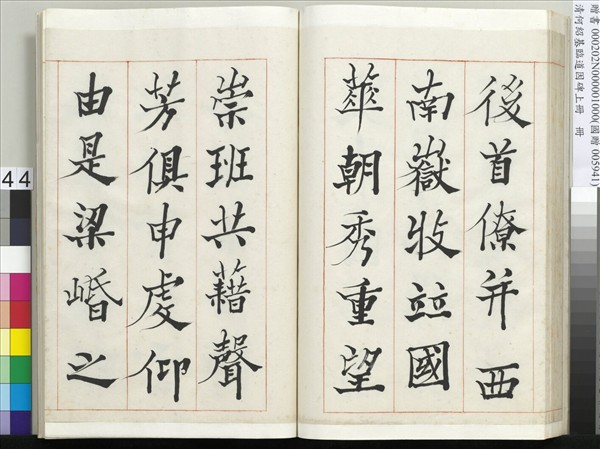 後首僚并西
南嶽牧竝國
華朝秀重望
崇班共藉聲
芳俱申虔仰
由是梁崏之
贈書 000202N0000001000(國贈 005941)
清何紹基臨道因碑上冊 冊
44